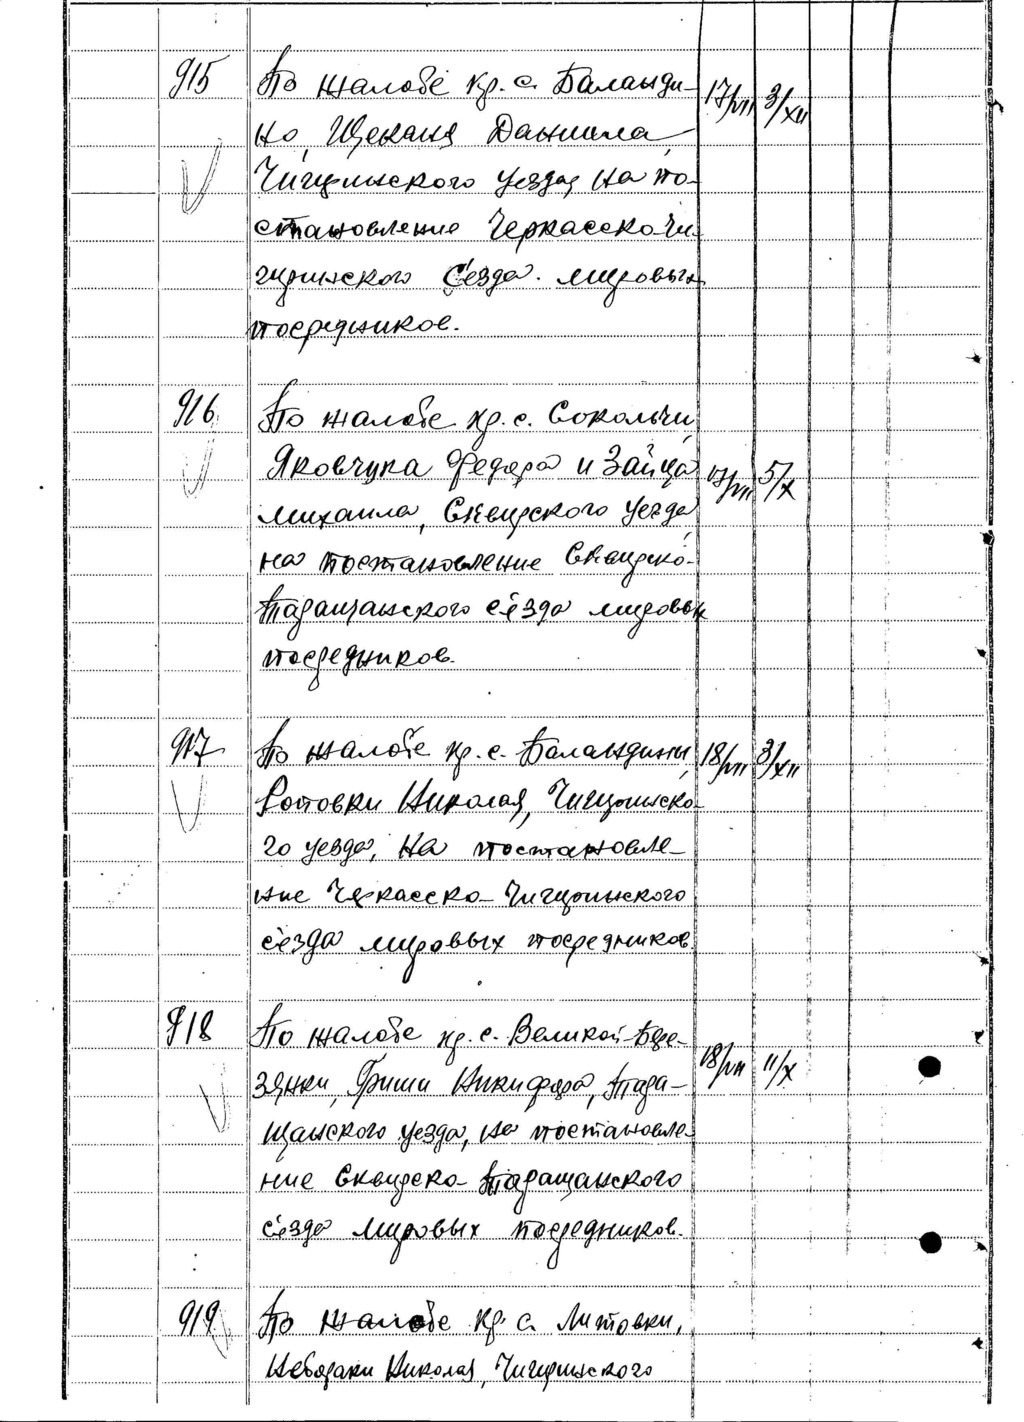 915 По жалобе кр. с. Баланди- 17/VII 3/XII
но, Щекана Даниила,
Чигиринского уезда, на по-
становление Черкасско-Чи-
гиринского с'езда мировых
посредников.
916 По жалобе кр. с. Сокольчи, 17/VII 5/X
Яковчука Федора и Зайца
Михаила, Сквирского уезда
на постановление Сквирско-
Таращанского с'езда мировых
посредников.
917 По жалобе кр. с. Баландины, 18/VII 3/XII
Николая, Чигиринско-
го уезда, на постановле-
ние Черкасско-Чигиринского
с'езда мировых посредников.
918 По жалобе кр. с. Великой-Бере- 18/VII 11/X
зянки, Гриши Никифора, Тара-
щанского уезда, на постановле-
ние Сквирско-Таращанского
с'езда мировых посредников.
919 По жалобе кр. с. Литовки,
Николая, Чигиринского